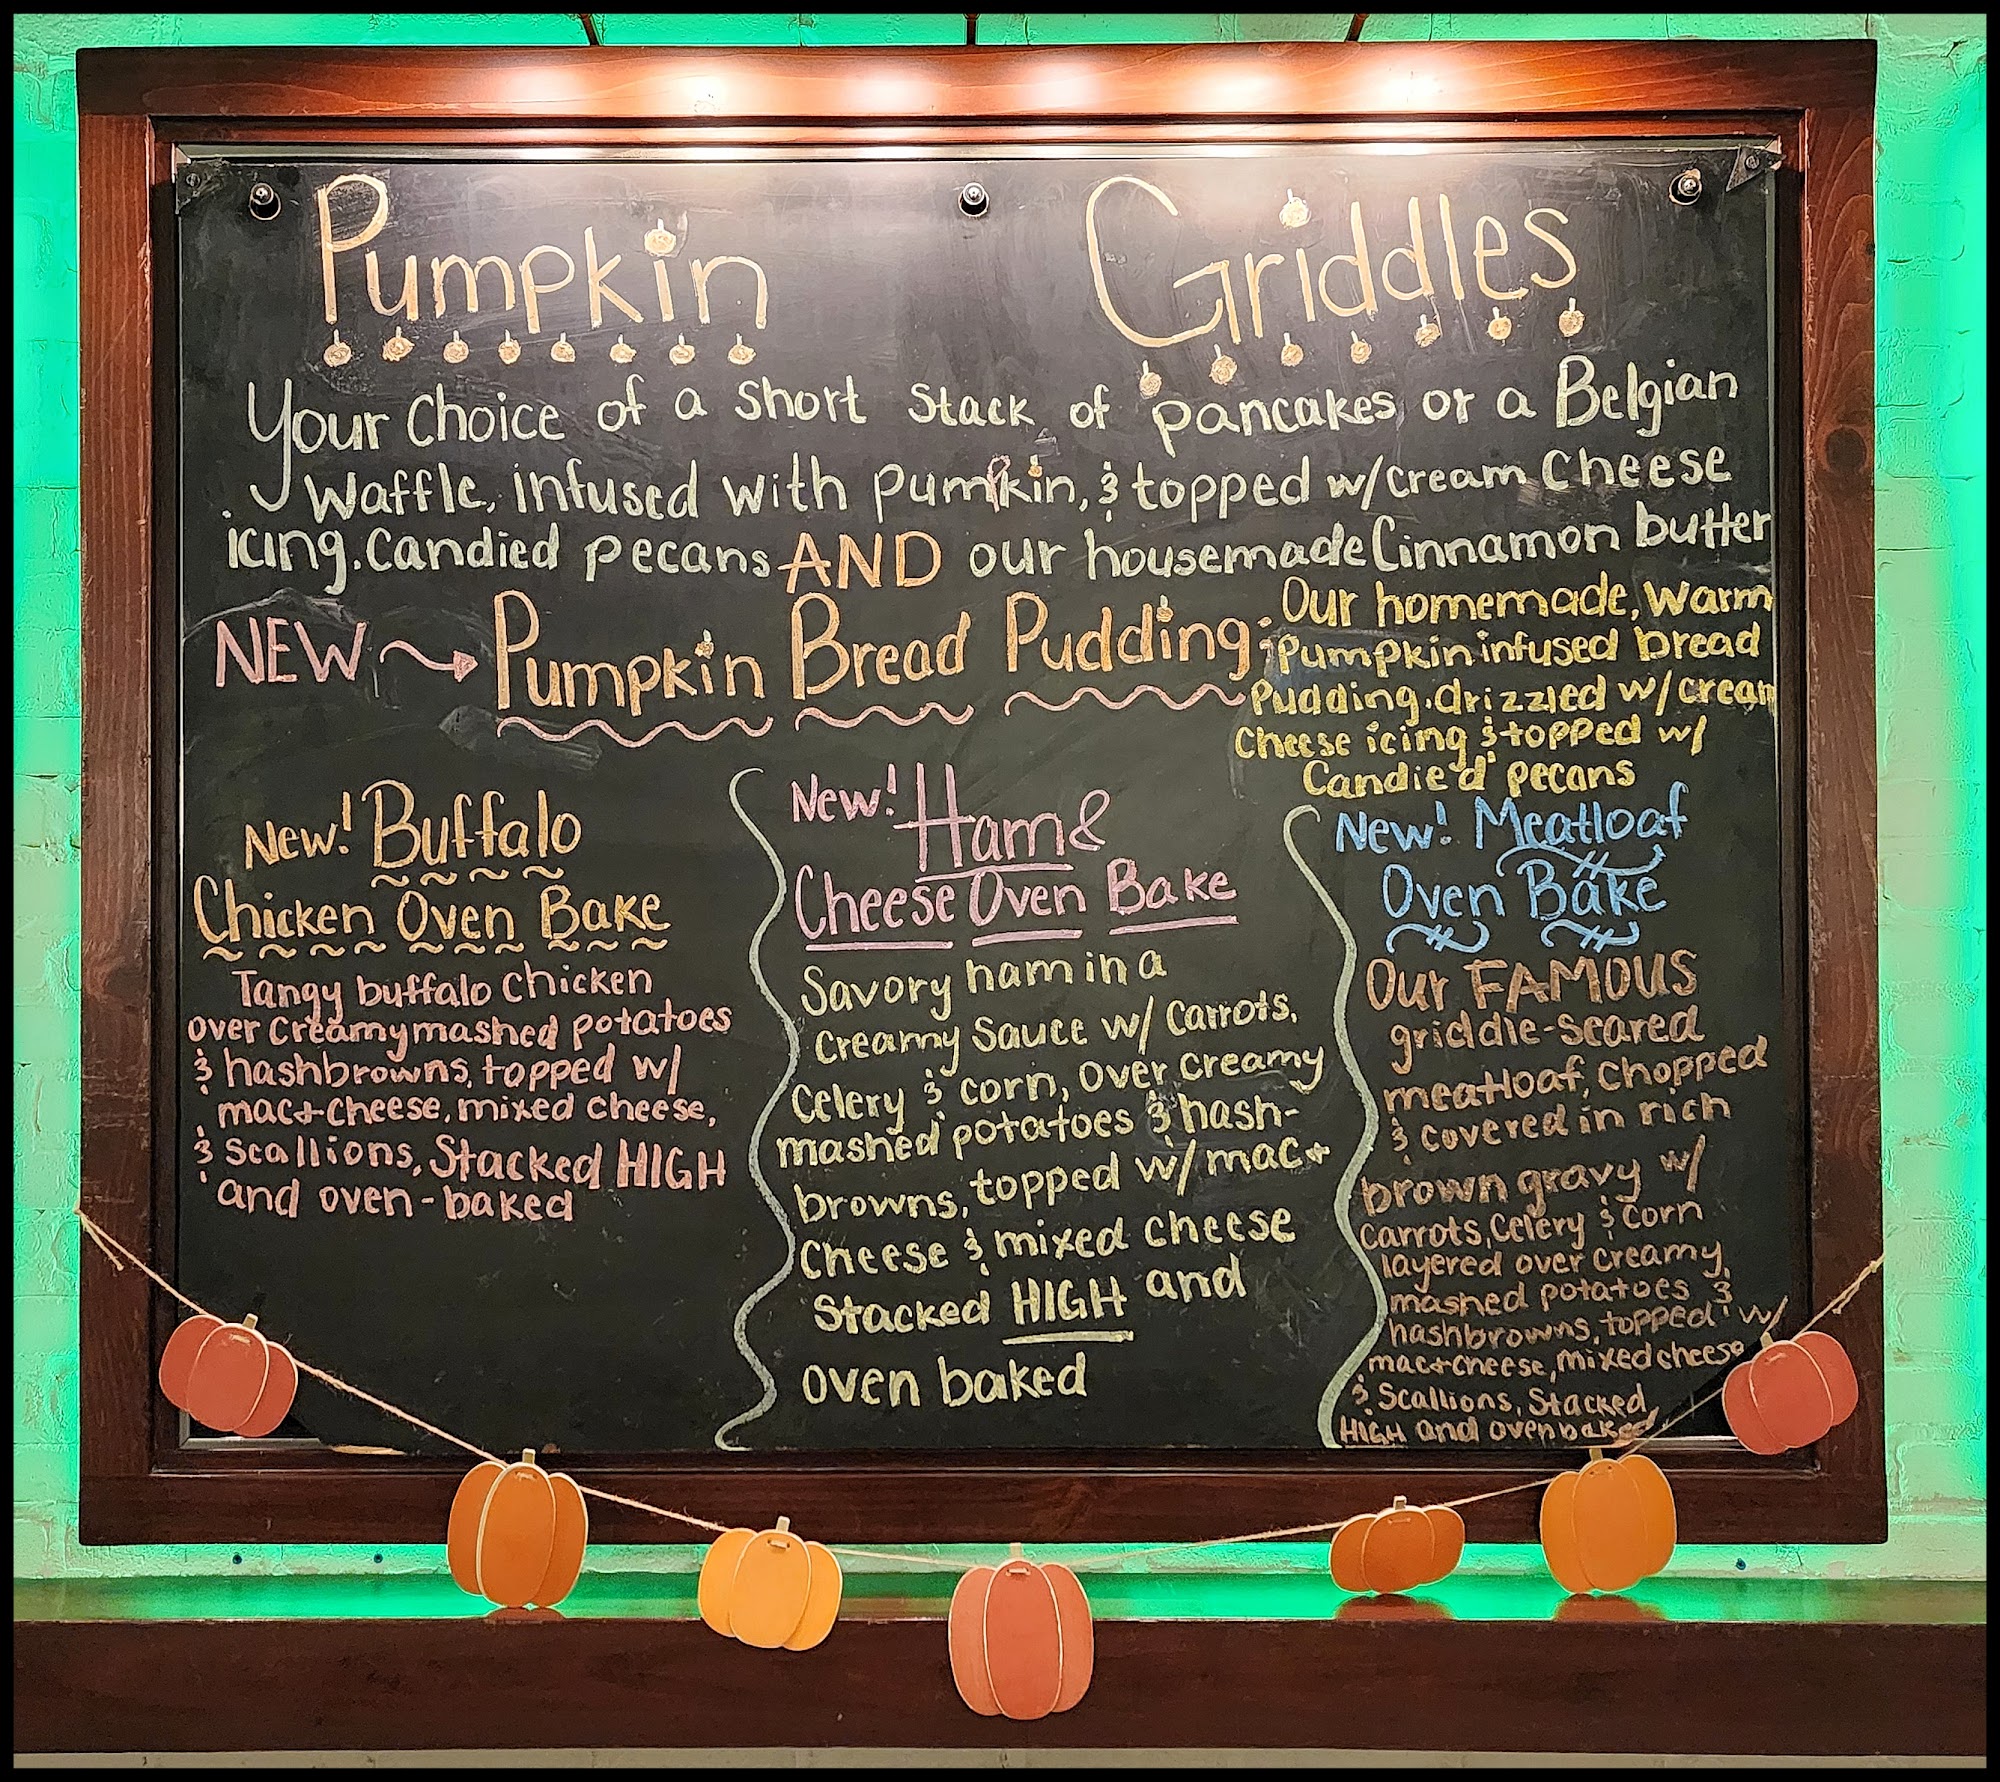 Pumpkin Griddles
Your Choice of a Short Stack of pancakes or a Belgian
Waffle, infused with pumpkin, & topped w/cream Cheese
icing. Candied pecans AND our housemade Cinnamon butter
NEW → Pumpkin Bread Pudding:
Our homemade, warm
Pumpkin infused bread
Pudding. drizzled w/ cream
Cheese icing & topped w/
Candied pecans
New! Buffalo
Chicken Oven Bake
Tangy buffalo Chicken
over Creamy mashed potatoes
& hashbrowns, topped w/
mac+cheese, mixed cheese,
& Scallions, Stacked HIGH
and oven-baked
New! Ham &
Cheese Oven Bake
Savory ham in a
Creamy Sauce w/ Carrots,
Celery & corn, Over creamy
mashed potatoes & hash-
browns, topped w/ mac+
Cheese & mixed cheese
Stacked HIGH and
oven baked
New! Meatloaf
Oven Bake
Our FAMOUS
griddle-seared
meatloaf, Chopped
& covered in rich
brown gravy w/
Carrots, Celery & corn
layered over creamy
mashed potatoes &
hashbrowns, topped w/
mac+cheese, mixed cheese
& Scallions, Stacked
HIGH and oven baked